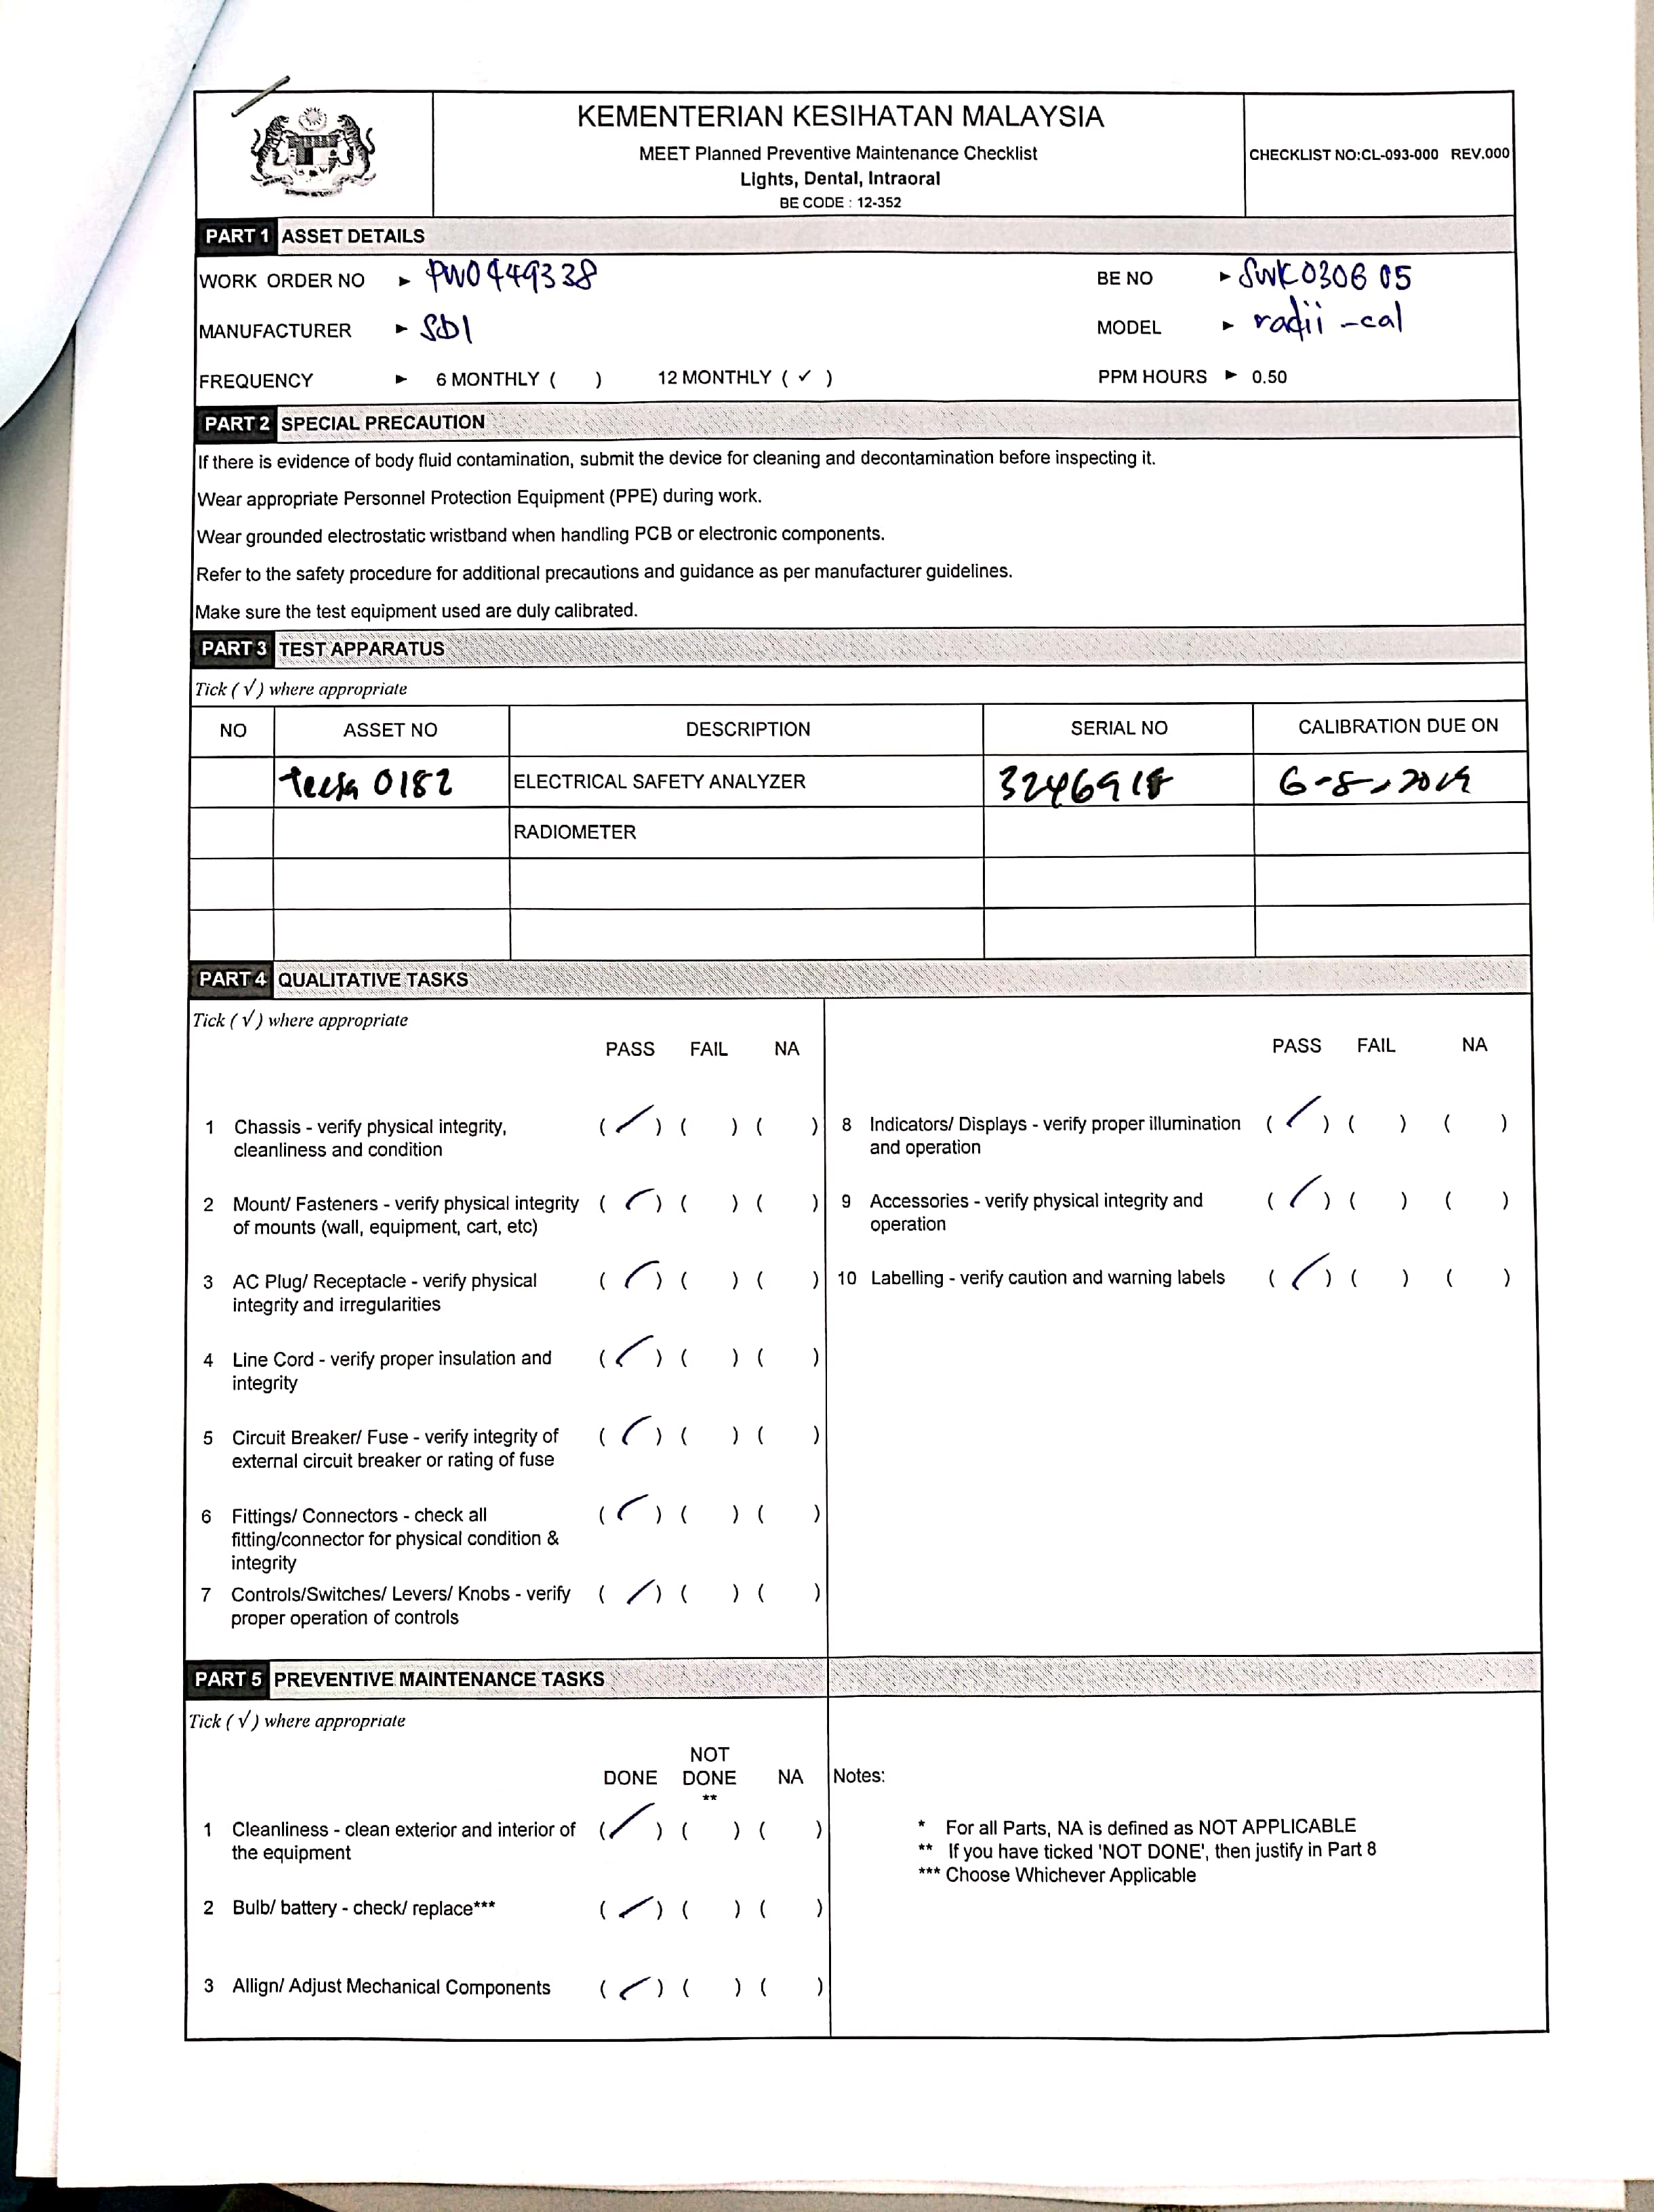 KEMENTERIAN KESIHATAN MALAYSIA
MEET Planned Preventive Maintenance Checklist
Lights, Dental, Intraoral
BE CODE : 12-352
CHECKLIST NO:CL-093-000 REV.000
PART 1 ASSET DETAILS
WORK ORDER NO ► PWO449338
BE NO ► SWK030605
MANUFACTURER ► SDI
MODEL ► radii-cal
FREQUENCY ► 6 MONTHLY ( ) 12 MONTHLY ( ✓ )
PPM HOURS ► 0.50
PART 2 SPECIAL PRECAUTION
If there is evidence of body fluid contamination, submit the device for cleaning and decontamination before inspecting it.
Wear appropriate Personnel Protection Equipment (PPE) during work.
Wear grounded electrostatic wristband when handling PCB or electronic components.
Refer to the safety procedure for additional precautions and guidance as per manufacturer guidelines.
Make sure the test equipment used are duly calibrated.
PART 3 TEST APPARATUS
Tick ( √ ) where appropriate
NO ASSET NO DESCRIPTION SERIAL NO CALIBRATION DUE ON
0182 ELECTRICAL SAFETY ANALYZER 6-8-2019
RADIOMETER
PART 4 QUALITATIVE TASKS
Tick ( √ ) where appropriate
PASS FAIL NA
1 Chassis - verify physical integrity, ( / ) ( ) ( )
cleanliness and condition
2 Mount/ Fasteners - verify physical integrity ( / ) ( ) ( )
of mounts (wall, equipment, cart, etc)
3 AC Plug/ Receptacle - verify physical ( / ) ( ) ( )
integrity and irregularities
4 Line Cord - verify proper insulation and ( / ) ( ) ( )
integrity
5 Circuit Breaker/ Fuse - verify integrity of ( / ) ( ) ( )
external circuit breaker or rating of fuse
6 Fittings/ Connectors - check all ( / ) ( ) ( )
fitting/connector for physical condition &
integrity
7 Controls/Switches/ Levers/ Knobs - verify ( / ) ( ) ( )
proper operation of controls
PASS FAIL NA
8 Indicators/ Displays - verify proper illumination ( / ) ( ) ( )
and operation
9 Accessories - verify physical integrity and ( / ) ( ) ( )
operation
10 Labelling - verify caution and warning labels ( / ) ( ) ( )
PART 5 PREVENTIVE MAINTENANCE TASKS
Tick ( √ ) where appropriate
NOT
DONE DONE NA
**
1 Cleanliness - clean exterior and interior of ( / ) ( ) ( )
the equipment
2 Bulb/ battery - check/ replace*** ( / ) ( ) ( )
3 Allign/ Adjust Mechanical Components ( / ) ( ) ( )
Notes:
* For all Parts, NA is defined as NOT APPLICABLE
** If you have ticked 'NOT DONE', then justify in Part 8
*** Choose Whichever Applicable